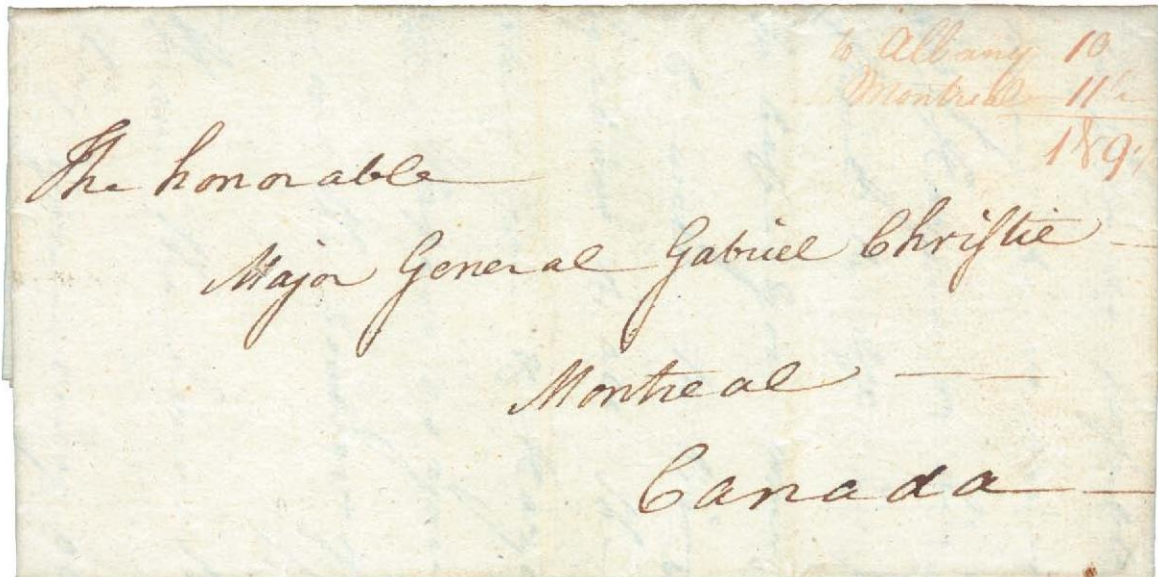 to Albany 10
Montreal 11½
1/9½
The honorable
Major General Gabriel Christie
Montreal
Canada